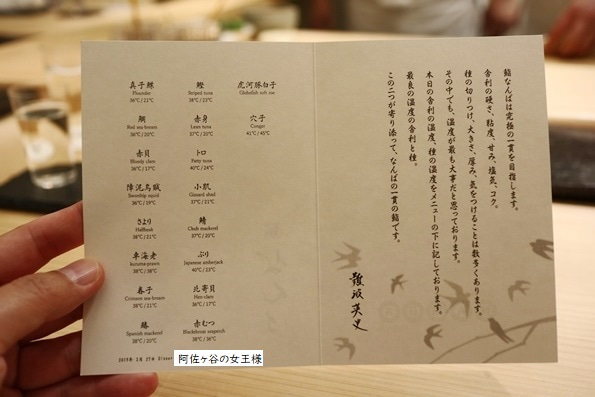 真子鰈
Flounder
36℃/21℃
鯛
Red sea-bream
36℃/20℃
赤貝
Bloody clam
36℃/17℃
障泥烏賊
Swordtip squid
36℃/19℃
さより
Halfbeak
38℃/21℃
車海老
kuruma-prawn
38℃/38℃
春子
Crimson sea-bream
38℃/21℃
鰆
Spanish mackerel
38℃/20℃
鰹
Striped tuna
38℃/23℃
赤身
Lean tuna
37℃/20℃
トロ
Fatty tuna
40℃/24℃
小肌
Gizzard shad
37℃/21℃
鯖
Chub mackerel
37℃/20℃
ぶり
Japanese amberjack
40℃/23℃
北寄貝
Hen-clam
36℃/17℃
赤むつ
Blackthroat seaperch
38℃/36℃
虎河豚白子
Globefish soft roe
穴子
Conger
41℃/45℃
2019年 2月 27日 Dinner
鮨なんばは究極の一貫を目指します。
舎利の硬さ、粘度、甘み、塩気、コク。
種の切りつけ、大きさ、厚み、気をつけることは数多くあります。
その中でも、温度が最も大事だと思っております。
本日の舎利の温度、種の温度をメニューの下に記しております。
最良の温度の舎利と種。
この二つが寄り添って、なんばの一貫の鮨です。
難波英史
阿佐ヶ谷の女王様